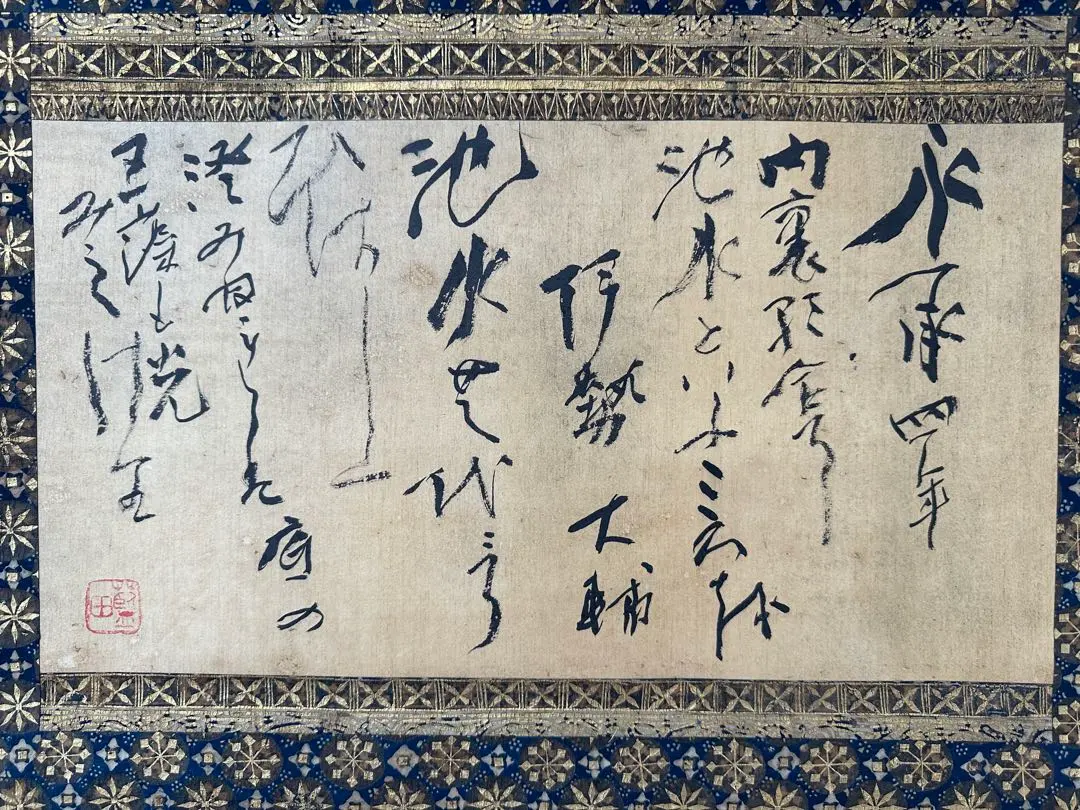 永承四年
内裏歌合に
池水といふこゝろを
伊勢大輔
池水の代々に
ひさしく
澄みぬれは底の
玉藻も光
みえけり
藍田